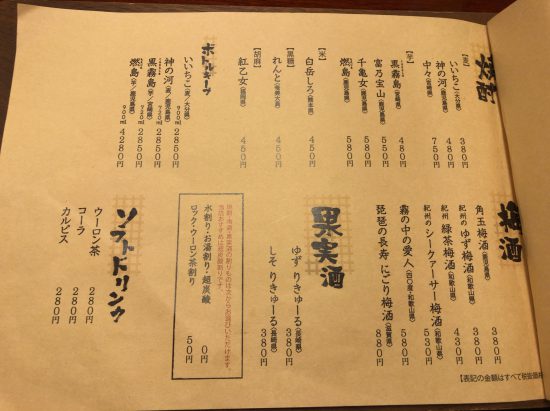 焼酎
【麦】
いいちこ（大分県） 380円
神の河（鹿児島県） 480円
中々（宮崎県） 750円
【芋】
黒霧島（宮崎県） 480円
富乃宝山（鹿児島県） 580円
千亀女（鹿児島県） 580円
燃島（鹿児島県） 580円
【米】
白岳しろ（熊本県） 450円
【黒糖】
れんと（奄美大島） 450円
【胡麻】
紅乙女（福岡県） 450円
ボトルキープ
いいちこ（麦／大分県） 900ml 2850円
神の河（麦／鹿児島県） 720ml 2850円
黒霧島（芋／宮崎県） 720ml 2850円
燃島（芋／鹿児島県） 900ml 4280円
梅酒
角玉梅酒（鹿児島県） 380円
紀州のゆず梅酒（和歌山県） 380円
紀州 緑茶梅酒（和歌山県） 430円
紀州のシークァーサー梅酒（和歌山県） 530円
霧の中の愛人（百〇度／和歌山県） 580円
琵琶の長寿 にごり梅酒（滋賀県） 880円
果実酒
ゆず りきゅーる（長崎県） 380円
しそ りきゅーる（長崎県） 380円
焼酎・梅酒・果実酒の割りものは次からお選びいただけます。
水割り・お湯割り・超炭酸 0円
ロック・ウーロン茶割り 50円
ソフトドリンク
ウーロン茶 280円
コーラ 280円
カルピス 280円
【表記の金額はすべて税抜価格